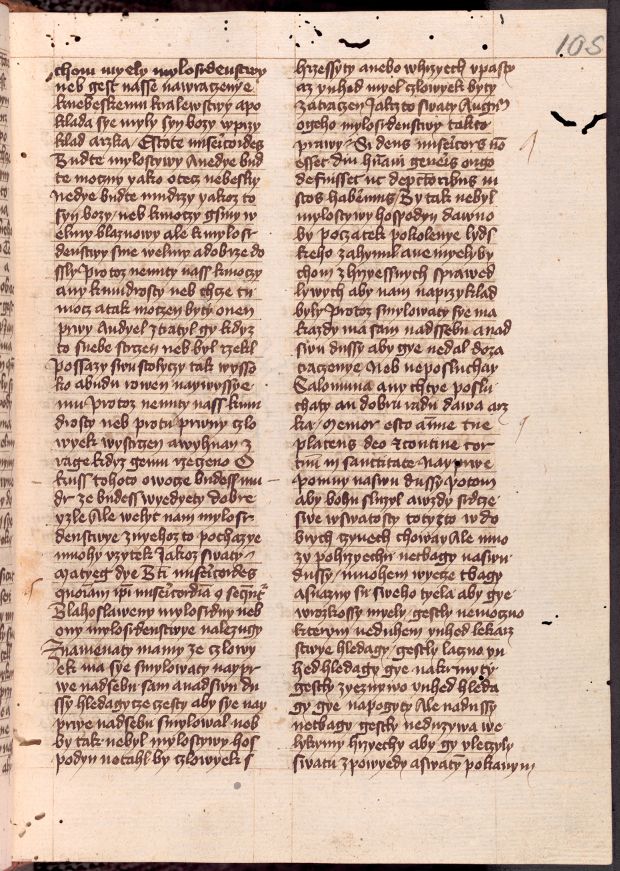 105
chom myely mylosrdenstwy
neb gest nasse nawraczenye
knebeskemu kralewstwy a po
klada sye myly syn bozy wprzy
klad arzka Estote misericordes
Budte mylostywy A nedye bud
te moczny yako otecz nebesky
nedye budte mudrzy yakoz to
syn bozy neb kmoczy gsmy w
elmy blaznowy ale k mylosr
denstwy sme welmy a dobrze do
ssly Protoz nenuty nass kmoczy
any kmudrosty neb chcze tu
mocz a tak moczen byty onen
prwy Andyel ztratyl gy kdyz
to snebe strzen neb byl rzekl
Possazy swu stolyczy tak wysso
ko a budu rowen naywyssye
mu Protoz nenuty nass kmu
drosty neb protu prwny czlo
wyek wystrzen a wyhnan z
rage kdyz gemu rzeczeno O
kuss tohoto owocze budess mu
dr ze budess wyedyety dobre
y zle Ale welyt nam mylosr
denstwye z nyehoz to pochazye
mnohy vzytek Jakoz swaty
Matyeg dye Bti misericordes
quoniam ipi misericordia 9sequt
Blahoslaweny mylosrdny neb
ony mylosrdenstwye nalezugy
Znamenaty mamy ze czlowy
ek ma sye smylowaty naypr
we nad sebu sam a nad swu du
ssy hledagycze czesty aby sye nay
prwe nad sebu smylowal neb
by tak nebyl mylostywy hos
podyn notahl by czlowyek s
hrzessyty anebo whrzyech vpasty
az yuhed myel czlowyek byty
zatraczen Jakz to swaty Augu
o geho mylosrdenstwy takto
prawy Si deus misericors no
esset diu huam generis origo
defuisset ut deptoribus iu
stos habemus By tak nebyl
mylostywy hospodyn dawno
by poczatek pokolenye lyds
keho zahynul a ne myely by
chom z hrzyessnych sprawed
lywych aby nam naprzyklad
byly Protoz smylowaty sye ma
kazdy ma sam nad ssebu a nad
swu dussy aby gye nedal do za
traczenye Neb neposluchay
Salomuna any chtye poslu
chaty an dobru radu dawa arz
ka Memor esto anime tue
placens deo z contine cor
tuu in sanctitate Nayprwe
pomny na swu dussy potom
aby bohu sluzyl a wzdy srdcze
swe w swatosty toty z to w do
brych czynech choway Ale mno
zy pohrzyechu netbagy na swu
dussy mnohem wyecze tbagy
a sluzny su sweho tyela aby gye
w rozkossy myely gestly nemoczno
kterym neduhem yuhed lekarz
stwye hledagy gestly laczno yu
hed hledagy gye nakrmyty
gestly zyeznywo yuhed hleda
gy gye napogyty Ale na dussy
netbagy gestly neduzywa we
lykymy hrzyechy aby gy vleczyly
swatu zpowyedy a swaty pokanym